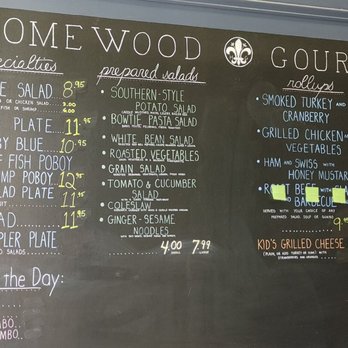 OMEWOOD GOUR
ecialties
E SALAD 8.95
OR CHICKEN SALAD 2.00
4.00
PLATE 11.95
BY BLUE 10.95
F FISH POBOY
MP POBOY 12.95
LAD PLATE 11.95
AD 11.95
PLER PLATE
the Day:
MBO
prepared salads
• SOUTHERN-STYLE
POTATO SALAD
• BOWTIE PASTA SALAD
• WHITE BEAN SALAD
• ROASTED VEGETABLES
• GRAIN SALAD
• TOMATO & CUCUMBER
SALAD
• COLESLAW
• GINGER-SESAME
NOODLES
4.00 7.99
rollups
• SMOKED TURKEY AND
CRANBERRY
• GRILLED CHICKEN
VEGETABLES
• HAM AND SWISS WITH
HONEY MUSTA
• ROAST BEEF WITH
BARBECUE
SERVED WITH YOUR CHOICE OF ANY
PREPARED SALAD, SOUP OR
9
KID'S GRILLED CHEESE